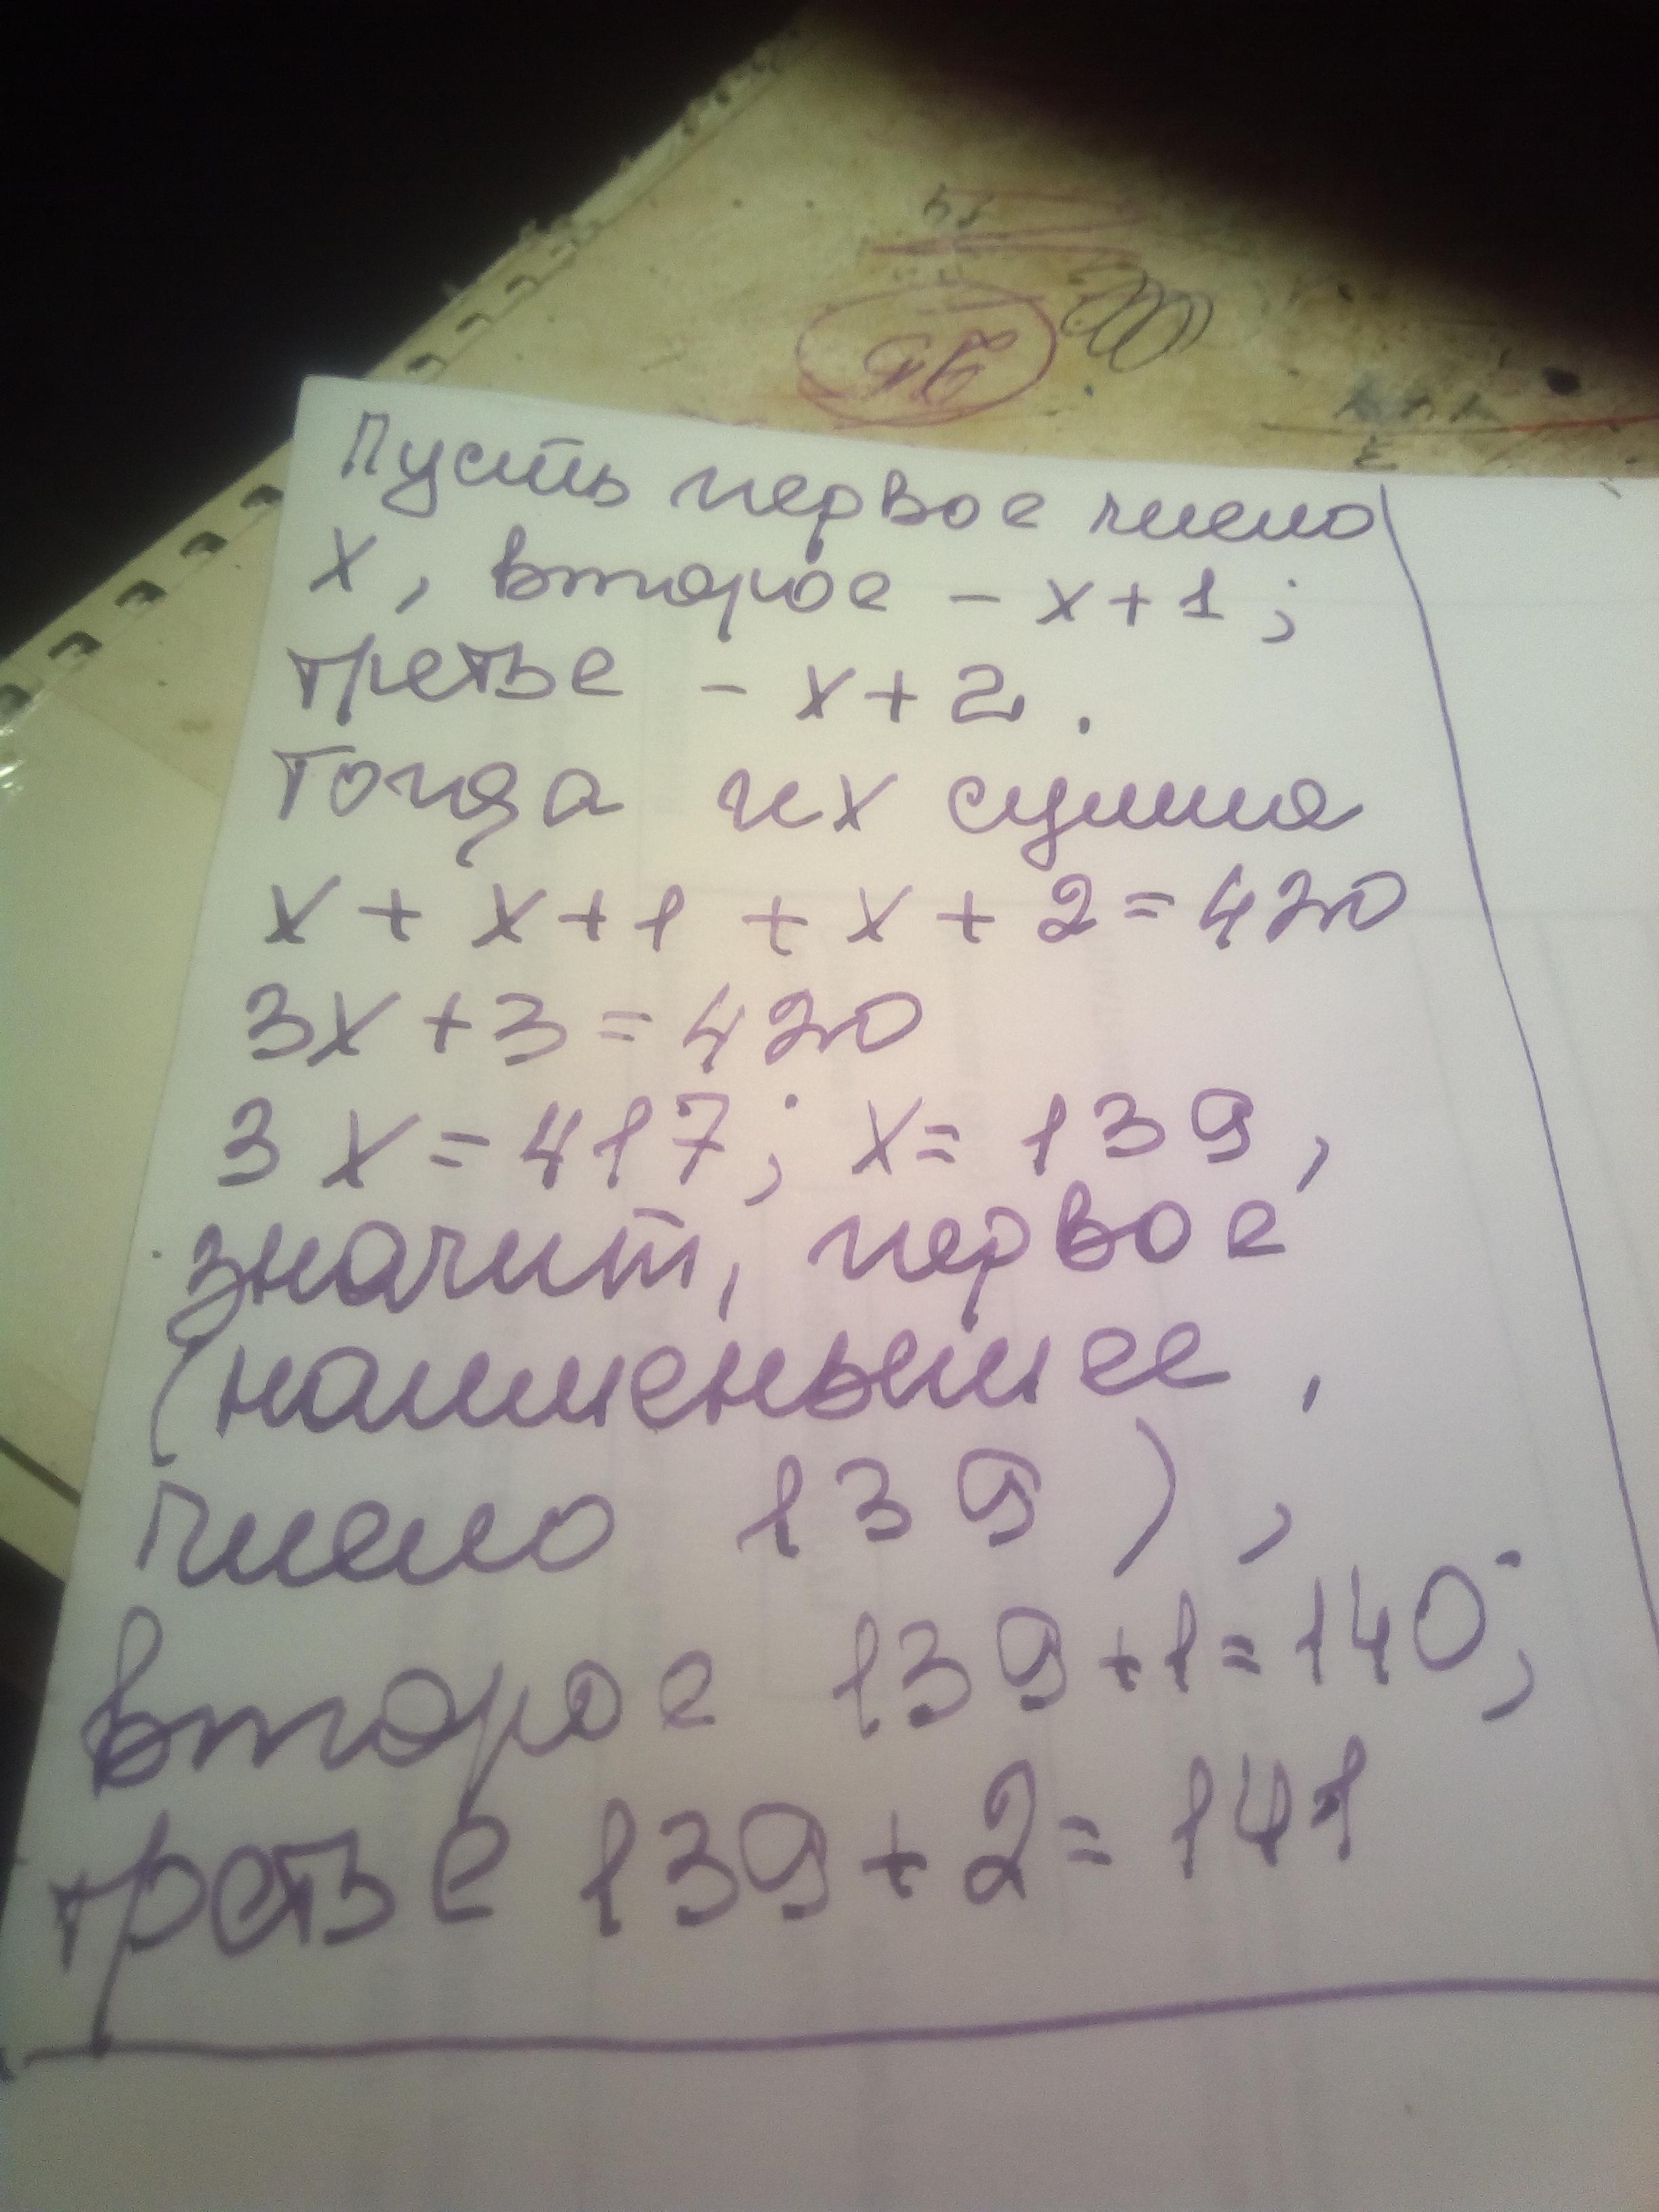 Пусть первое число
х, второе - х+1;
третье - х+2.
Тогда их сумма
х + х+1 + х + 2 = 420
3х + 3 = 420
3 х = 417; х = 139,
значит, первое
(наименьшее,
число 139),
второе 139+1=140;
третье 139+2=141